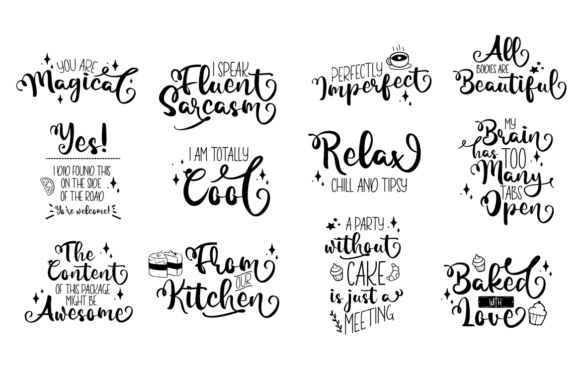 YOU ARE
Magical
I SPEAK
Fluent
Sarcasm
PERFECTLY
Imperfect
All
BODIES ARE
Beautiful
Yes!
I DID FOUND THIS
ON THE SIDE
OF THE ROAD
Yo're welcome!
I AM TOTALLY
Cool
Relax
CHILL AND TIPSY
MY
Brain
has TOO
Many
TABS
Open
The
Content
OF THIS PACKAGE
MIGHT BE
Awesome
From
OUR
Kitchen
A PARTY
without
CAKE
is just a
MEETING
Baked
WITH
Love